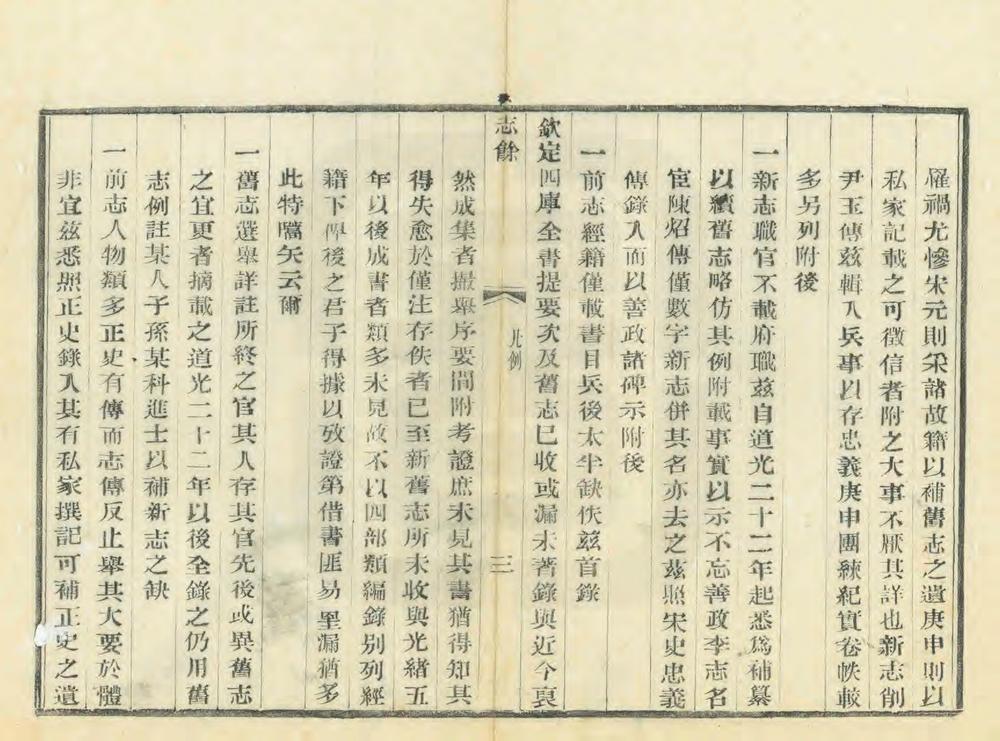 罹禍尤慘宋元則采諸故籍以補舊志之遺庚申則以
私家記載之可徵信者附之大事不厭其詳也新志削
尹玉傳茲輯入兵事以存忠義庚申團練紀實卷帙較
多另列附後
一新志職官不載府職茲自道光二十二年起悉爲補纂
以續舊志略仿其例附載事實以示不忘善政李志名
宦陳炤傳僅數字新志併其名亦去之茲照宋史忠義
傳錄入而以善政諸碑示附後
一前志經籍僅載書目兵後太半缺佚茲首錄
欽定四庫全書提要次及舊志已收或漏未著錄與近今裒
志餘
凡例
三
然成集者撮舉序要間附考證庶未見其書猶得知其
得失愈於僅注存佚者已至新舊志所未收與光緒五
年以後成書者類多未見故不以四部類編錄别列經
籍下俾後之君子得據以攷證第借書匪易罣漏猶多
此特嚆矢云爾
一舊志選舉詳註所終之官其人存其官先後或異舊志
之宜更者摘載之道光二十二年以後全錄之仍用舊
志例註某人子孫某科進士以補新志之缺
一前志人物類多正史有傳而志傳反止舉其大要於體
非宜茲悉照正史錄入其有私家撰記可補正史之遺